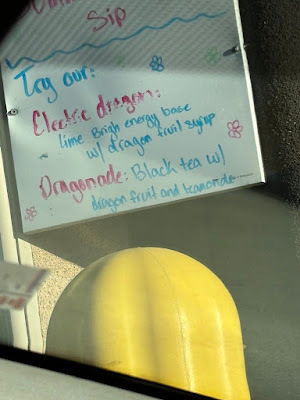 Sip
Try our:
Electric dragon:
lime Brigh energy base
w/ dragon fruit syrup
Dragonade: Black tea w/
dragon fruit and